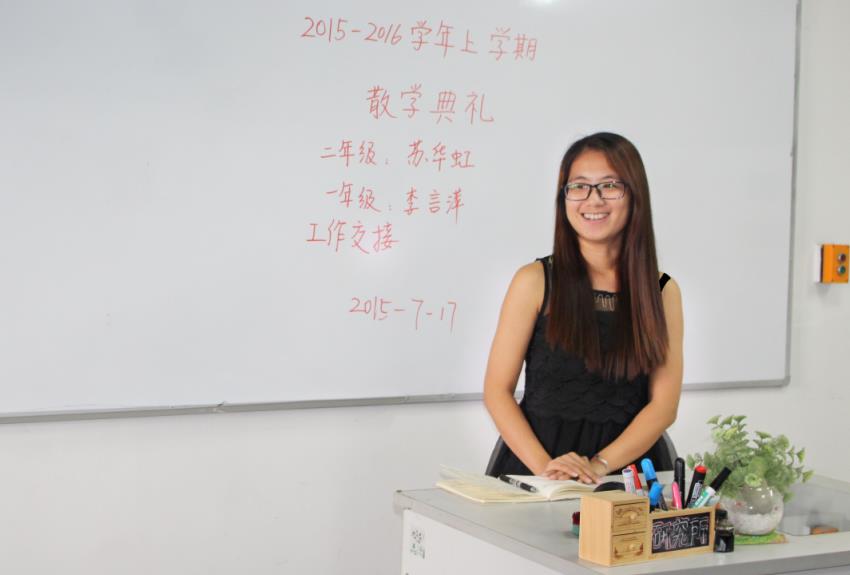 2015-2016学年上学期
散学典礼
二年级：苏华虹
一年级：李言萍
工作交接
2015-7-17
研究所